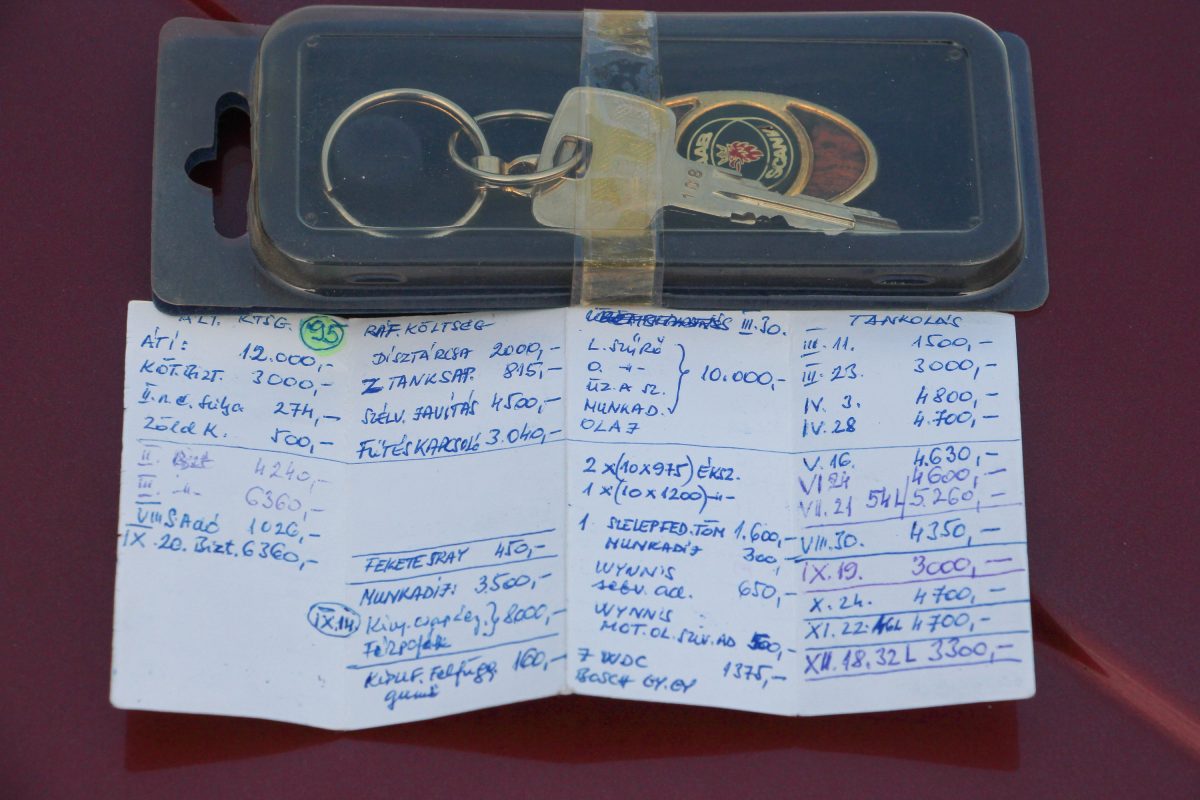 SAAB SCANIA
108
ÁLT. KTSG. 95
ÁTI: 12.000,-
KÖT. BIZT. 3000,-
274,-
Zöld K. 500,-
II. Bizt 4240,-
III. -"- 6360,-
VIII S. Adó 1026,-
IX. 20. Bizt. 6360,-
RÁF. KÖLTSÉG
DÍSZTÁRCSA 2000,-
2 TANKSAP. 815,-
SZÉLV. JAVÍTÁS 4500,-
FŰTÉSKAPCSOLÓ 3.040,-
FEKETE SPAY 450,-
MUNKADÍJ: 3.500,-
IX.14. 8000,-
KIPUF. Felfügg. 160,-
gumi
III. 30.
L. SZŰRŐ
O. -"-
ÜZ. A. SZ.
MUNKAD.
OLAJ
10.000,-
2 x (10x975) ÉKSZ.
1 x (10x1200) -"-
1 SZELEPFED. TÖM 1.600,-
MUNKADÍJ 300,-
WYNNIS
650,-
WYNNIS
MOT. OL. SZIV. AD 500,-
7 WDC 1375,-
BOSCH GY. GY
TANKOLÁS
III. 11. 1500,-
III. 23. 3000,-
IV. 3. 4800,-
IV. 28 4.700,-
V. 16. 4.630,-
VI 24 4600,-
VII. 21 54L 5.260,-
VIII. 30. 4350,-
IX. 19. 3000,-
X. 24. 4700,-
XI. 22. 46L 4700,-
XII. 18. 32L 3300,-